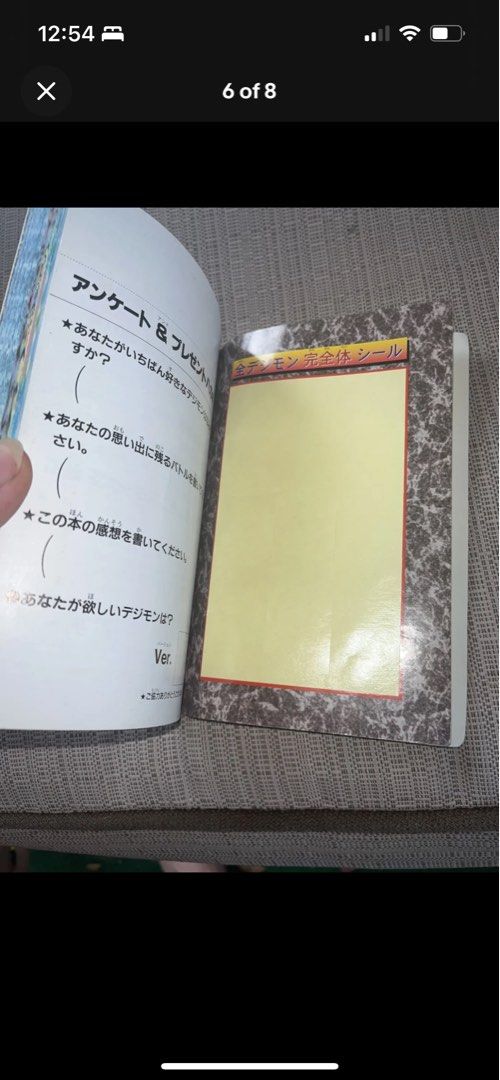 12:54
6 of 8
アンケート & プレゼント
★あなたがいちばん好きなデジモン
すか?
(
★あなたの思い出に残るバトルを
さい。
(
★この本の感想を書いてください。
(
あなたが欲しいデジモンは?
バージョン
Ver.
★ご協力ありがとう
全デジモン 完全体 シール